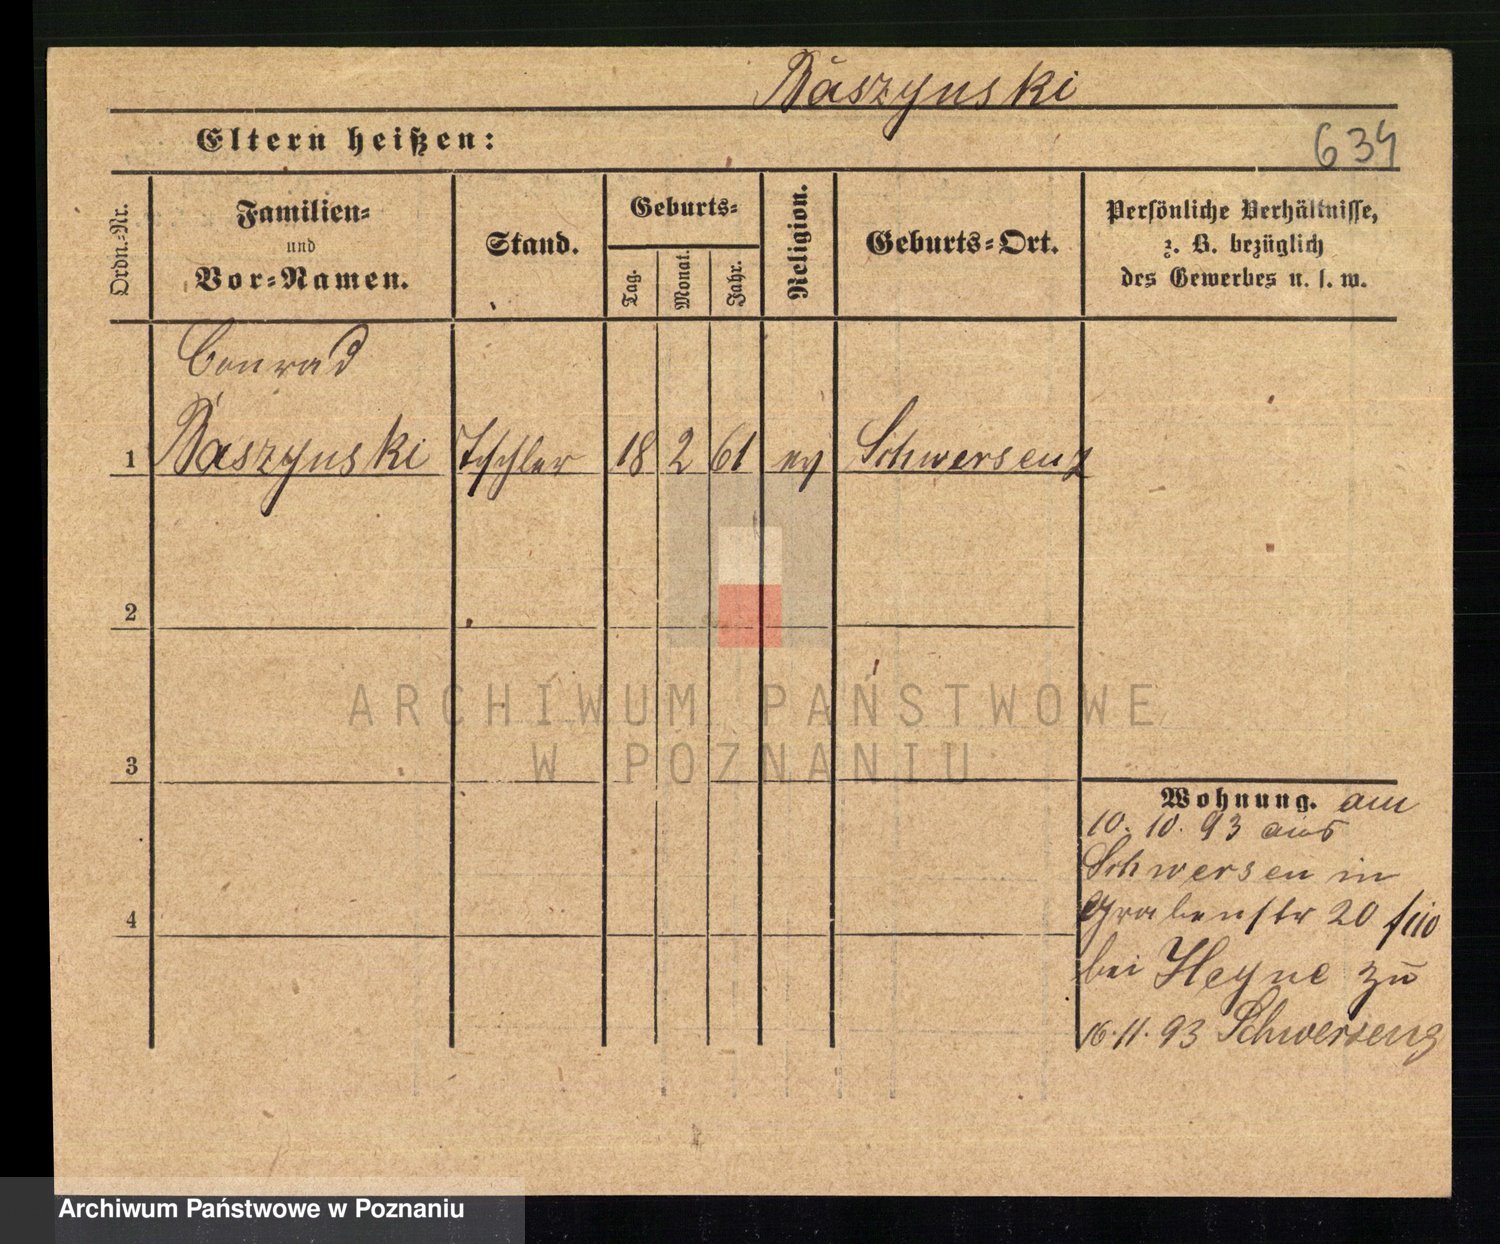 Baszynski
Eltern heißen:
634
Ordn.-Nr.
Familien-
und
Vor-Namen.
Stand.
Geburts-
Tag.
Monat.
Jahr.
Religion.
Geburts-Ort.
Persönliche Verhältnisse,
z. B. bezüglich
des Gewerbes u. s. w.
Conrad
1 Baszynski Tischler 18 2 61 ev Schwersenz
2
3
4
Wohnung. am
10. 10. 93 aus
Schwersen in
Grabenstr 20
bei Heyne zu
16.11.93 Schwersenz
ARCHIWUM PAŃSTWOWE
W POZNANIU
Archiwum Państwowe w Poznaniu